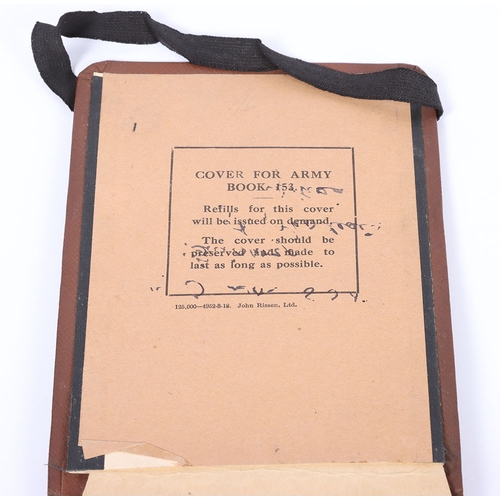 COVER FOR ARMY
BOOK 153.
Refills for this cover
will be issued on demand.
The cover should be
preserved and made to
last as long as possible.
125,000—4952-8-18. John Rissen, Ltd.